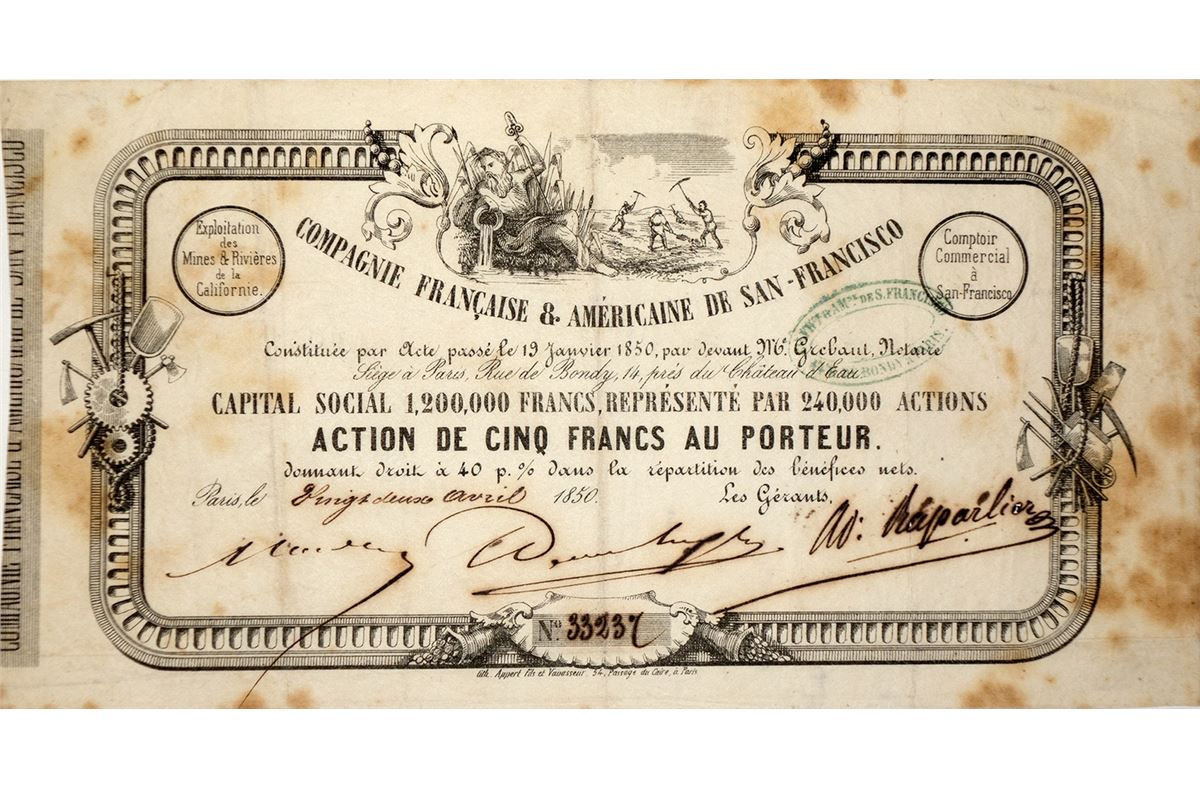 COMPAGNIE FRANÇAISE & AMÉRICAINE DE SAN-FRANCISCO
Exploitation
des
Mines & Rivières
de la
Californie.
Comptoir
Commercial
à
San-Francisco
Constituée par Acte passé le 19 Janvier 1850, par devant Me. Grebaut, Notaire
Siège à Paris, Rue de Bondy, 14, près du Château d'Eau
CAPITAL SOCIAL 1,200,000 FRANCS, REPRÉSENTÉ PAR 240,000 ACTIONS
ACTION DE CINQ FRANCS AU PORTEUR.
donnant droit à 40 p. % dans la répartition des bénéfices nets.
Paris, le Vingt deux Avril 1850. Les Gérants,
No 33237
Lith. Appert Fils et Vavasseur, 54, Passage du Caire, à Paris